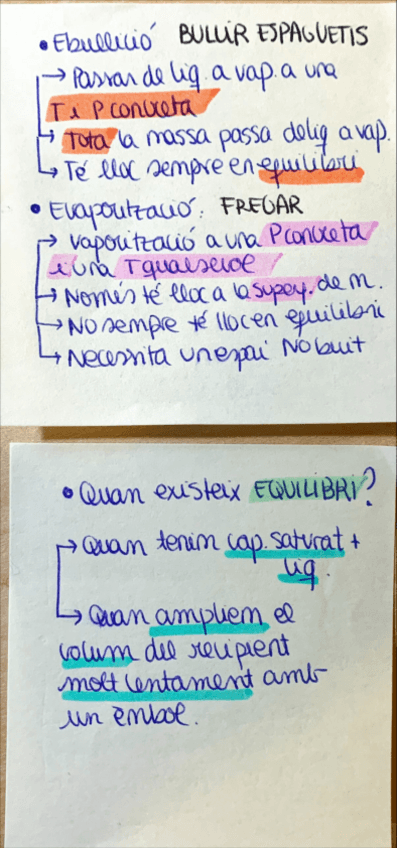 • Ebullició BULLIR ESPAGUETIS
→ Passar de liq. a vap. a una
T i P concreta
→ Tota la massa passa de liq a vap.
→ Té lloc sempre en equilibri
• Evaporització: FREGAR
→ vaporització a una P concreta
i una T qualsevol
→ Només té lloc a la superf. de m.
→ No sempre té lloc en equilibri
→ Necessita un espai NO buit
• Quan existeix EQUILIBRI?
→ Quan tenim cap. saturat +
liq.
→ Quan ampliem el
volum del recipient
molt lentament amb
un èmbol.